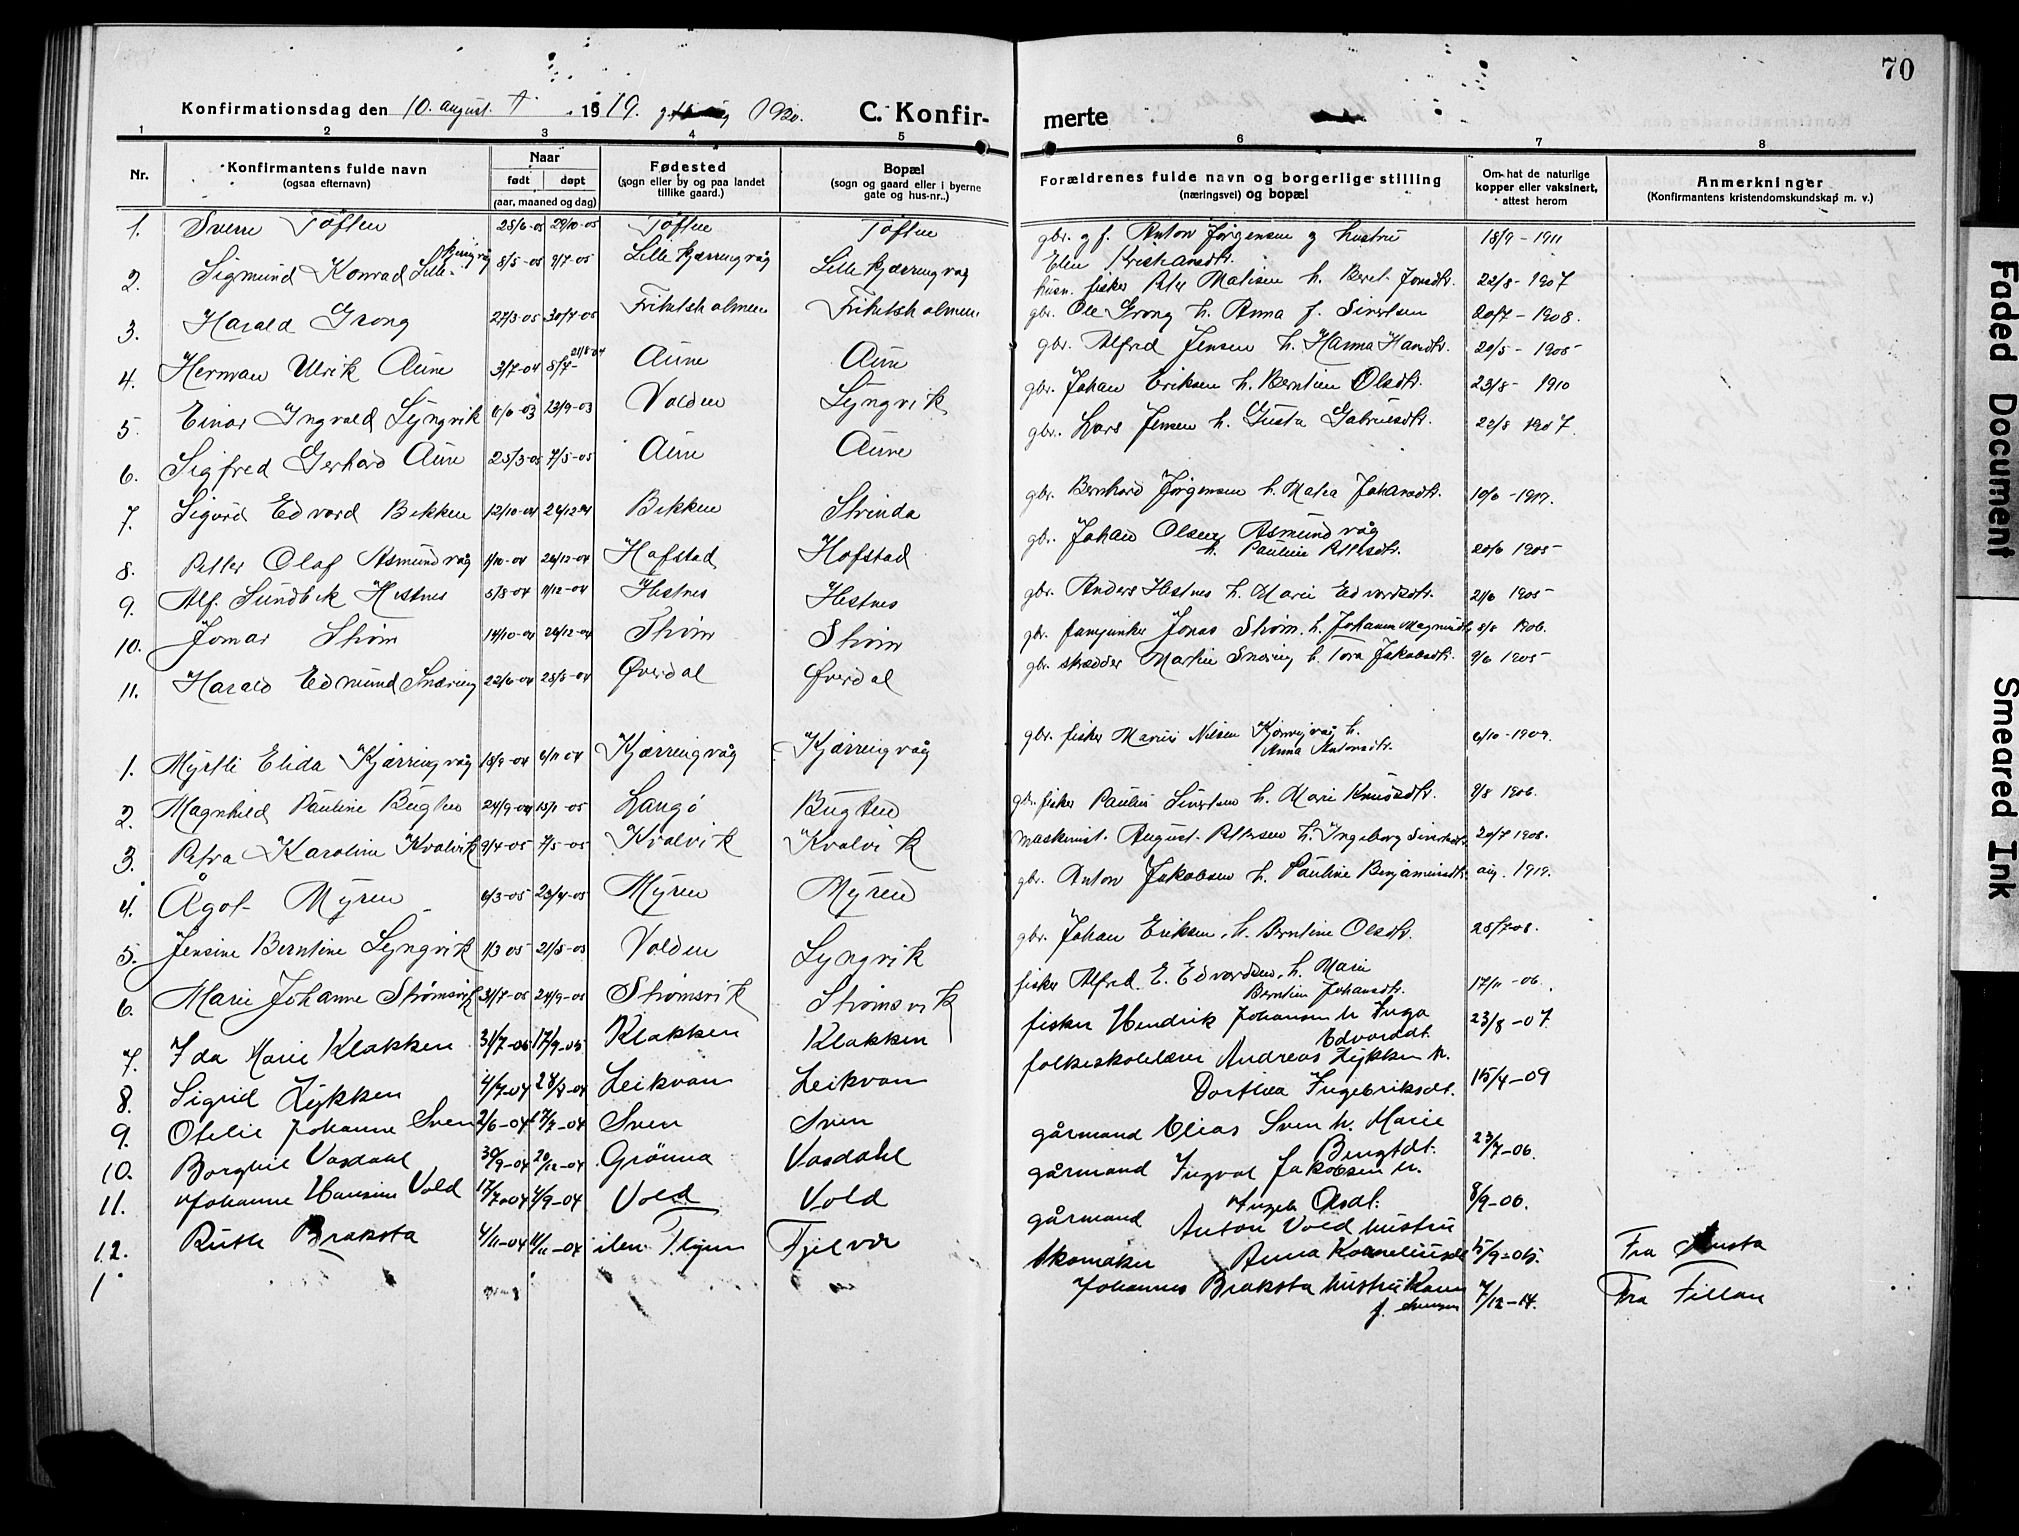 70
Konfirmationsdag den 10. august. 1919. 1920. C. Konfir-
merte
1 2 3 4 5
6 7 8
Nr. Konfirmantens fulde navn (ogsaa efternavn) Naar født døpt (aar, maaned og dag) Fødested (sogn eller by og paa landet tillike gaard.) Bopæl (sogn og gaard eller i byerne gate og hus-nr..)
Forældrenes fulde navn og borgerlige stilling (næringsvei) og bopæl Om hat de naturlige kopper eller vaksinert, attest herom Anmerkninger (Konfirmantens kristendomskundskap m. v.)
1. Sverre Tøften 25/6-05 29/10-05 Tøften Tøften
2. Sigmund Konrad Lille- kjæringvåg 8/5-05 9/7-05 Lille kjærringvåg Lille kjærringvåg
3. Harald Grong 27/3-05 30/7-05
4. Herman Ulrik Aune 3/7-04 Aune Aune
5. Einar Ingvald Lyngvik 13/9-03 Volden Lyngvik
6. Sigfred Gerhard Aune 25/3-05 7/5-05 Aune Aune
7. Sigurd Edvard Bekken 12/10-04 26/12-04 Bekken Strinda
8. Petter Olaf Asmundvåg 1/10-04 26/12-04 Hofstad Hofstad
9. Alf. Sundbek Hestnes 5/8-04 11/12-04 Hestnes Hestnes
10. Jomar Strøm 14/10-04 26/12-04 Strøm Strøm
11. Harald Edmund Snæring 22/6-04 28/8-04 Øverdal Øverdal
1. Myrtli Elida Kjærringvåg 13/9-04 6/11 04 Kjærringvåg Kjærringvåg
2. Magnhild Pauline Bugten 24/9-04 15/1-05 Langö Bugten
3. Petra Karoline Kvalvik 9/4-05 7/5-05 Kvalvik Kvalvik
4. Ågot Myren 6/3-05 23/4-05 Myren Myren
5. Jensine Berntine Lyngvik 1/3 05 21/5-05 Volden Lyngvik
6. Marie Johanne Strømsvik 31/7-05 24/9-05 Strømsvik Strømsvik
7. Ida Marie Klakken 31/7-05 17/9-05 Klakken Klakken
8. Sigrid Lykken 4/7-04 28/8-04 Leikvan Leikvan
9. Otelie Johanne Sven 2/6-04 17/7-04 Sven Sven
10. Borghil Vasdahl 30/9-04 20/12-04 Grönna Vasdahl
11. Johanne Hansine Vold 17/7-04 4/9-04 Vold Vold
12. Ruth Braksta 4/11-04 11/11-04 Fjelvær
1
gbr. g f. Anton Jørgensen og hustru 18/9 - 1911
Elen Kristiansdt.
husm. fisker Peter Matisen h. Beret Jonsdt. 22/8 - 1907
gbr. Ole Grong h. Anna f. Sivertsen 20/7 - 1908.
gbr. Alfred Jensen h. Hanna Hansdt. 20/5 - 1905
gbr. Johan Eriksen h. Berntine Olsdt. 23/8 - 1910
gbr. Lars Jensen h. Gusta Gabrielsdt. 22/8 1907.
gbr. Bernhard Jørgensen h. Matea Johansdt. 10/6 - 1907.
gbr. Johan Olsen Asmundvåg
h. Pauline Pettersdt. 20/6 1905
gbr. Anders Hestnes h. Marie Edvardsdt. 21/6 1905
gbr. fanejunker Jonas Strøm h. Johanna Magnusdt. 8/8 1906.
gbr. skrædder Martin Snæring h. Tora Jakobsdt. 9/6 1905
gbr. fisker Marius Nilsen Kjæringvåg h. 6/10 - 1909.
Anna Antonsdt.
gbr. fisker Paulus Sivertsen h. Marie Knudsdt. 9/8 1906.
maskinist. August Petersen h. Ingeborg Sivertsdt. 20/7 1908.
gbr. Anton Jakobsen h. Pauline Benjaminsdt. aug. 1919.
gbr. Johan Eriksen h. Berntine Olsdt. 25/7 08.
fisker Alfred E. Edvardsen h. Marie
Berntine Johansdt. 17/11 - 06.
fisker Hendrik Johansen h. Inga 23/8 - 07.
Edvardsdt.
folkeskolelærer Andreas Lykken h.
Dorthea Ingebriksdt. 15/4 - 09
gårmand Elias Sven h. Marie
Bengtdt. 23/7 - 06.
gårmand Ingval Jakobsen h.
Olsdt. 8/9 - 06.
gårmand Anton Vold hustru
Anna Korneliusdt 15/9 - 05. Fra
Skomaker
Johannes Braksta hustru Karen 7/12 - 14. Fra Fillan
Faded Document
Smeared Ink